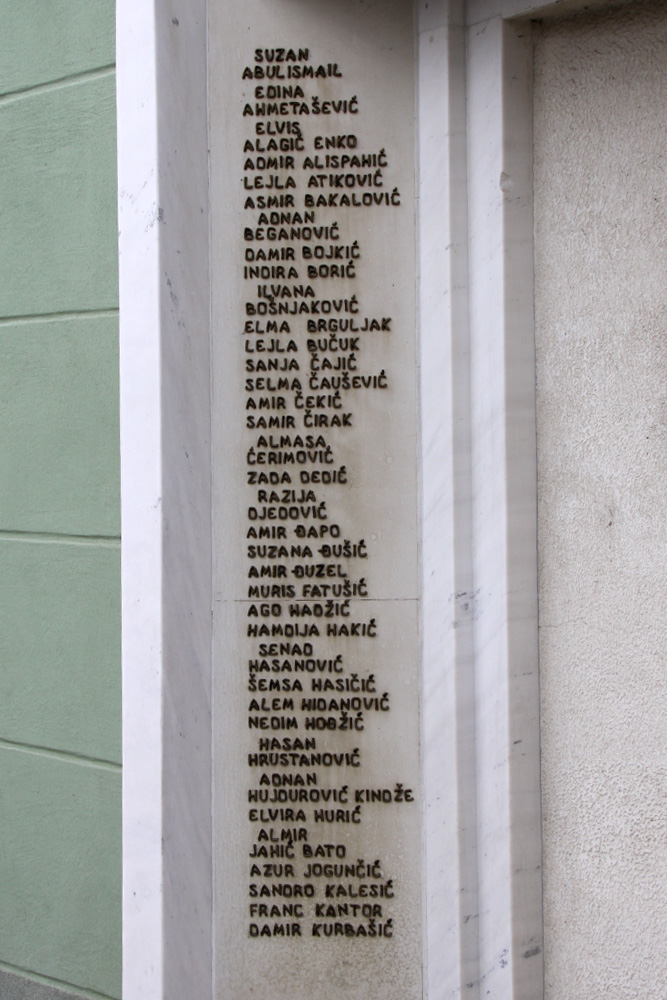 SUZAN
ABULISMAIL
EDINA
AHMETAŠEVIĆ
ELVIS
ALAGIĆ ENKO
ADMIR ALISPAHIĆ
LEJLA ATIKOVIĆ
ASMIR BAKALOVIĆ
ADNAN
BEGANOVIĆ
DAMIR BOJKIĆ
INDIRA BORIĆ
ILVANA
BOŠNJAKOVIĆ
ELMA BRGULJAK
LEJLA BUČUK
SANJA ČAJIĆ
SELMA ČAUŠEVIĆ
AMIR ČEKIĆ
SAMIR ČIRAK
ALMASA
ĆERIMOVIĆ
ZADA DEDIĆ
RAZIJA
DJEDOVIĆ
AMIR ĐAPO
SUZANA ĐUŠIĆ
AMIR ĐUZEL
MURIS FATUŠIĆ
AGO HADŽIĆ
HAMDIJA HAKIĆ
SENAD
HASANOVIĆ
ŠEMSA HASIČIĆ
ALEM HIDANOVIĆ
NEDIM HODŽIĆ
HASAN
HRUSTANOVIĆ
ADNAN
HUJDUROVIĆ KINDŽE
ELVIRA HURIĆ
ALMIR
JAHIĆ BATO
AZUR JOGUNČIĆ
SANDRO KALESIĆ
FRANC KANTOR
DAMIR KURBAŠIĆ